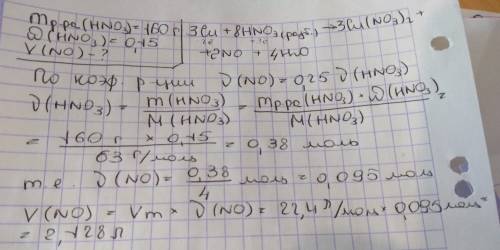 mр-ра(HNO₃)=160 г | 3Cu + 8HNO₃(разб) → 3Cu(NO₃)₂ +
ω(HNO₃)=0,15 | +2NO + 4H₂O
V(NO)-?
По коэф. р-ции ν(NO)=0,25 ν(HNO₃)
ν(HNO₃) = m(HNO₃)/M(HNO₃) = mр-ра(HNO₃)·ω(HNO₃)/M(HNO₃) =
= 160 г × 0,15/63 г/моль = 0,38 моль
т.е. ν(NO) = 0,38/4 моль = 0,095 моль
V(NO) = Vm × ν(NO) = 22,4 л/моль × 0,095 моль =
= 2,128 л